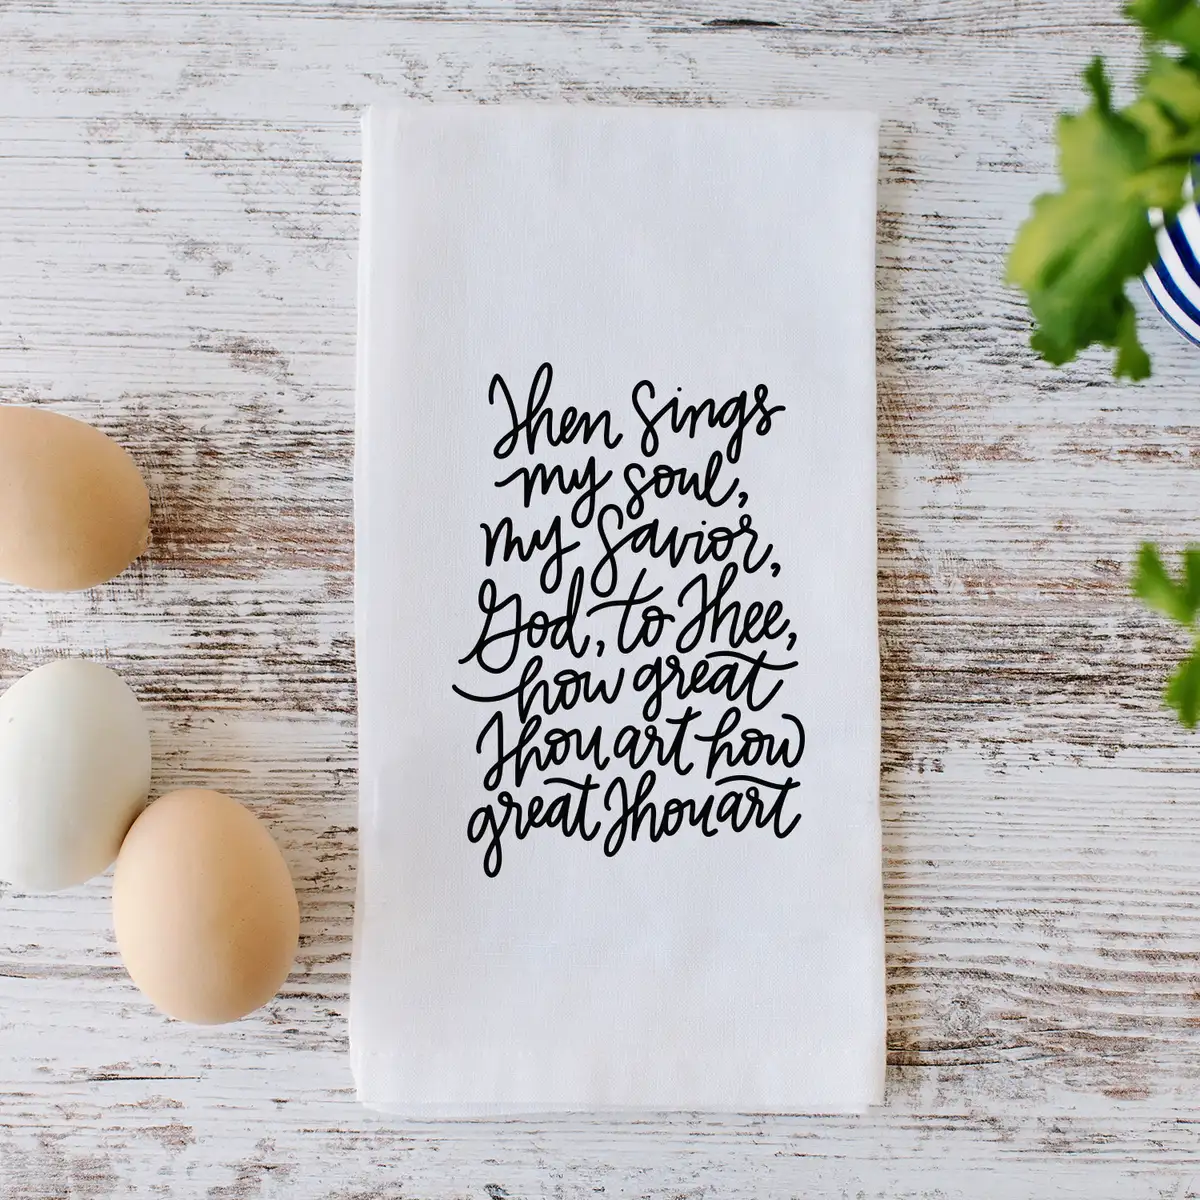 Then Sings
my soul,
my Savior,
God, to Thee,
how great
Thou art how
great Thou art